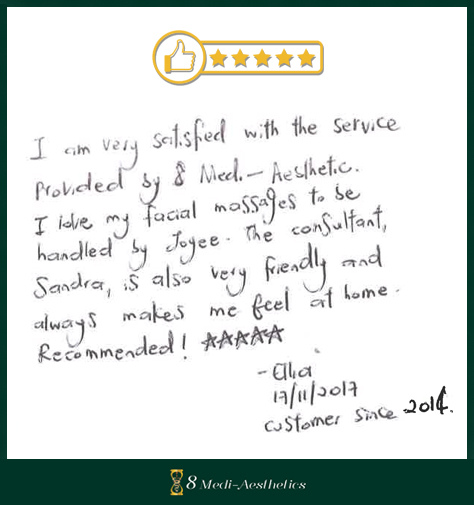 I am very satisfied with the service
Provided by 8 Med.- Aesthetic.
I love my facial massages to be
handled by Joyee. The consultant,
Sandra, is also very friendly and
always makes me feel at home.
Recommended! ★★★★★
- Elia
17/11/2017
customer since 2014.
8 Medi-Aesthetics